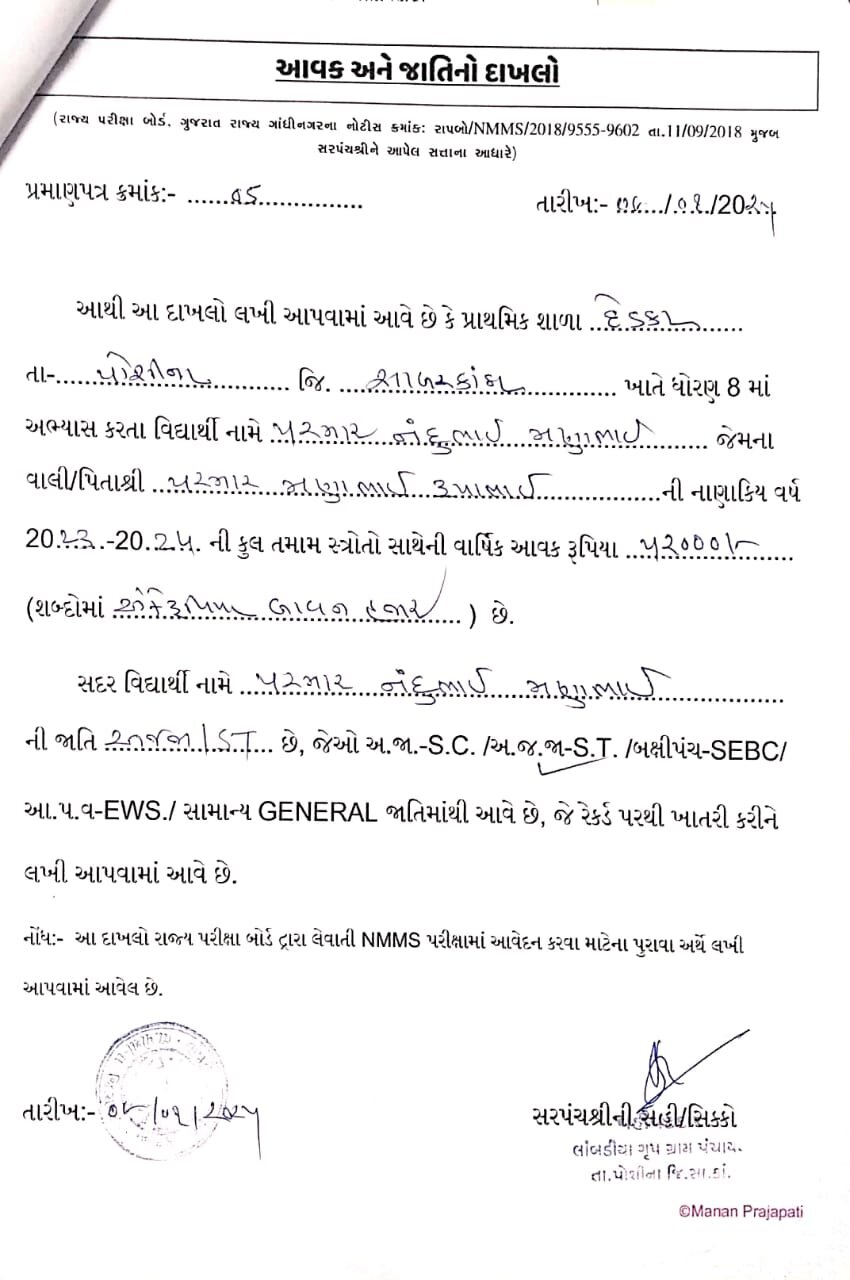 આવક અને જાતિનો દાખલો
(રાજ્ય પરીક્ષા બોર્ડ. ગુજરાત રાજ્ય ગાંધીનગરના નોટીસ ક્રમાંક: રાપબો/NMMS/2018/9555-9602 તા.11/09/2018 મુજબ
સરપંચશ્રીને આપેલ સત્તાના આધારે)
પ્રમાણપત્ર ક્રમાંક:- ...................... તારીખ:- ...../.૦૧./20૨૫
આથી આ દાખલો લખી આપવામાં આવે છે કે પ્રાથમિક શાળા ..દેડકા......
તા-......પોશીના............ જિ. ....સાબરકાંઠા............ ખાતે ધોરણ 8 માં
અભ્યાસ કરતા વિદ્યાર્થી નામે .પરમાર નંદુભાઈ મણાભાઈ........ જેમના
વાલી/પિતાશ્રી ..પરમાર મણાભાઈ રૂપાભાઈ.............ની નાણાકિય વર્ષ
20.૨૩.-20.૨૫. ની કુલ તમામ સ્ત્રોતો સાથેની વાર્ષિક આવક રૂપિયા ..૫૨૦૦૦/-.....
(શબ્દોમાં .અંકે રૂપિયા બાવન હજાર.... ) છે.
સદર વિદ્યાર્થી નામે ..પરમાર નંદુભાઈ મણાભાઈ..............
ની જાતિ .અજજા/ST... છે, જેઓ અ.જા.-S.C. /અ.જ.જા-S.T. /બક્ષીપંચ-SEBC/
આ.પ.વ-EWS./ સામાન્ય GENERAL જાતિમાંથી આવે છે, જે રેકર્ડ પરથી ખાતરી કરીને
લખી આપવામાં આવે છે.
નોંધ:- આ દાખલો રાજ્ય પરીક્ષા બોર્ડ દ્રારા લેવાતી NMMS પરીક્ષામાં આવેદન કરવા માટેના પુરાવા અર્થે લખી
આપવામાં આવેલ છે.
તારીખ:- /૦૧/૨૦૨૫
સરપંચશ્રીની સહી/સિક્કો
લાંબડીયા ગૃપ ગ્રામ પંચાય.
તા.પોશીના જિ.સા.કાં.
©Manan Prajapati